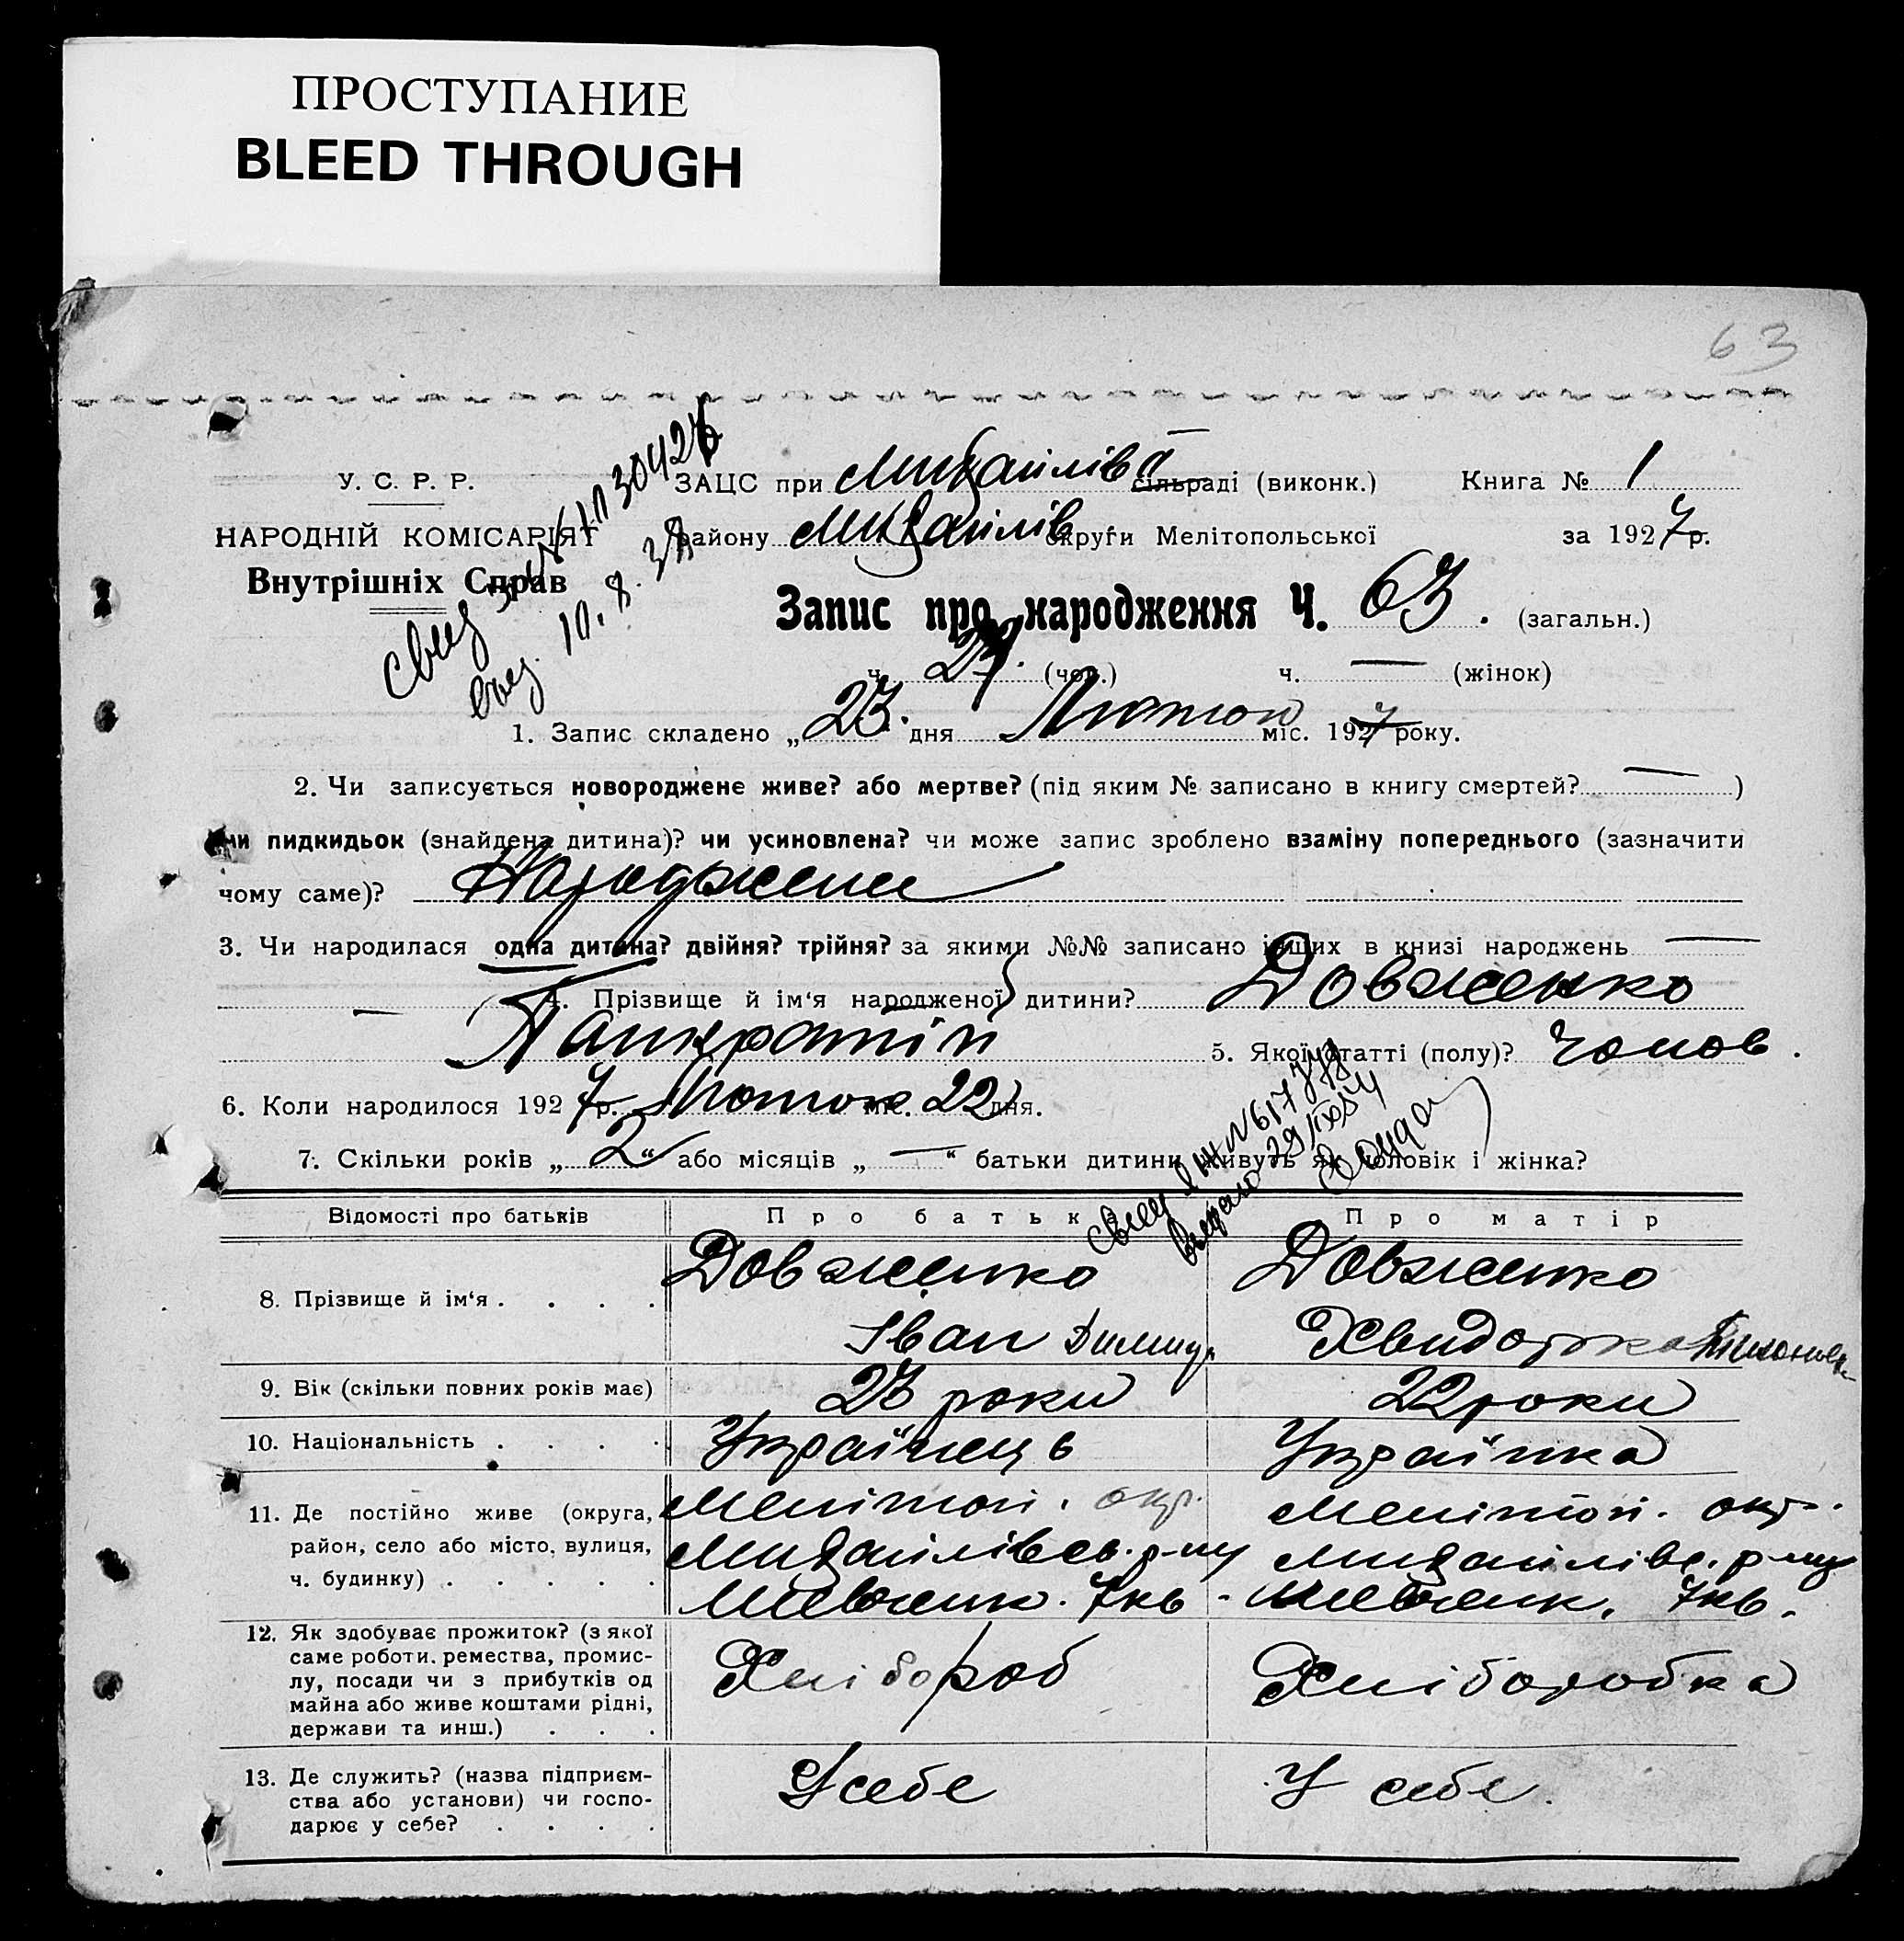 ПРОСТУПАНИЕ
BLEED THROUGH
63
У. С. Р. Р.
НАРОДНІЙ КОМІСАРІЯТ
Внутрішніх Справ
ЗАЦС при Михайлів сільраді (виконк.) Книга № 1
району Михайлів округи Мелітопольської за 1927 р.
Запис про народження Ч. 63. (загальн.)
ч. 29. (чол.) ч. — (жінок)
1. Запис складено „23." дня Лютого міс. 1927 року.
2. Чи записується новороджене живе? або мертве? (під яким № записано в книгу смертей? — )
чи пидкидьок (знайдена дитина)? чи усиновлена? чи може запис зроблено взаміну попереднього (зазначити
чому саме)? Народжене
3. Чи народилася одна дитина? двійня? трійня? за якими №№ записано інших в книзі народжень —
— 4. Прізвище й ім'я народженої дитини? Довженко
Панкратій 5. Якої статті (полу)? чолов.
6. Коли народилося 1927 р. Лютого міс. 22 дня.
7. Скільки років „2" або місяців „—" батьки дитини живуть як чоловік і жінка?
Відомості про батьків Про батька Про матір
8. Прізвище й ім'я . . . . Довженко Довженко
Іван
9. Вік (скільки повних років має) 23 роки 22 роки
10. Національність . . . . Українець Українка
11. Де постійно живе (округа, Меліпол. окр. Меліпол. окр.
район, село або місто, вулиця, Михайлівсь. р-ну Михайлівс. р-ну
ч. будинку) . . . . . 7 кв. 7 кв.
12. Як здобуває прожиток? (з якої
саме роботи, ремества, промис-
лу, посади чи з прибутків од Хлібороб Хліборобка
майна або живе коштами рідні,
держави та инш.) . . .
13. Де служить? (назва підприєм- У себе У себе.
ства або установи) чи госпо-
дарює у себе? . . . .